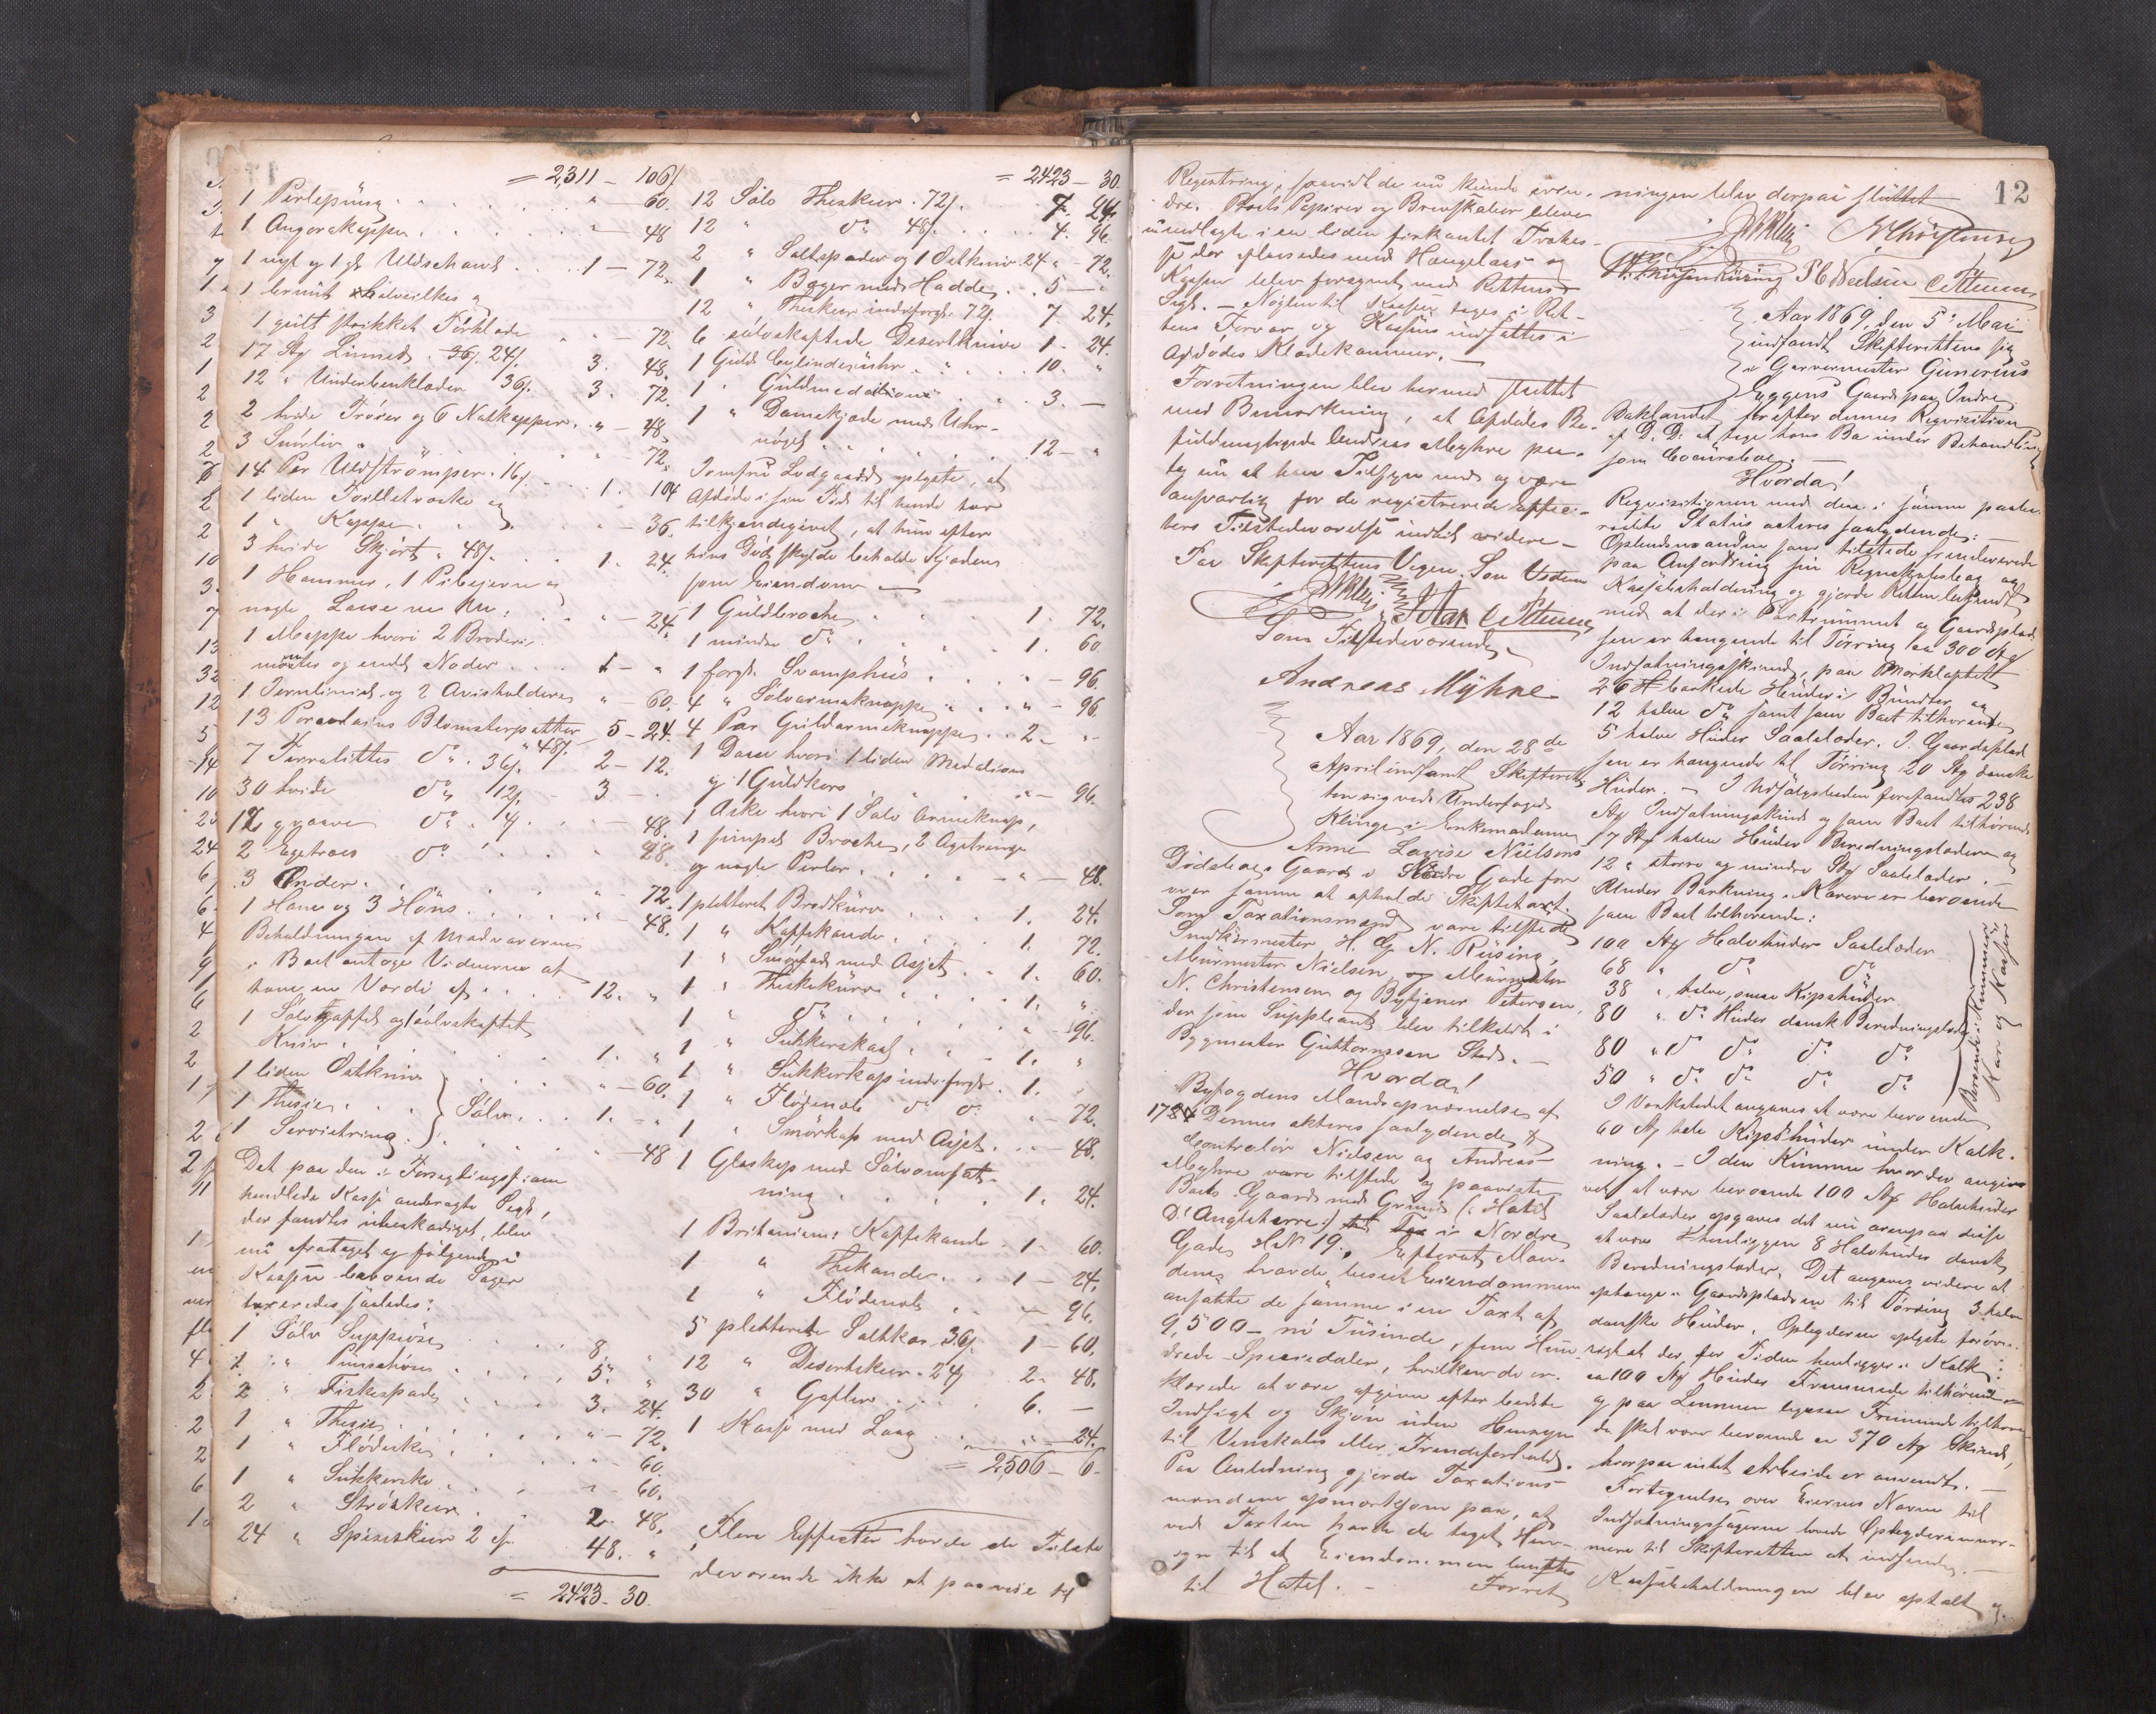 = 2311 - 106
1 Perlepung . . . " - 60.
1 Angorakappe . . . " - 48
1 nyt og 1 gl. Uldschawl . . 1 - 72.
1 brunt Halvsilkes og
1 gult strikket Törklæde " - 72.
17 Stk Linned. 24 3. 48.
12 " Underbenklæder 36 3. 72.
2 hvide Tröier og 6 Natkapper. " - 48.
3 Snörliv . . . " 72.
14 Par Uldströmper. 16 . . 1. 104
1 liden Toilletæske og
1 " Kappe . . . " - 36.
3 hvide Skjört. 48 . . 1. 24.
1 Hammer, 1 Pibejern og
nogle Laase m. m. . . " - 24.
1 Mappe hvori 2 Broderi-
mönster og endel Noder . . 1 - "
1 Jernlinial og 2 Avisholdere " - 60.
13 Porcelains Blomsterpotter 48 5 - 24.
7 Terralittes do. 36 2 - 12.
30 hvide do 12 - 3 -
12 graae do. 4. . . 48.
2 Egetræs do . . 28
3 Ænder. . . " - 72.
1 Hane og 3 Höns . . . " - 48.
Beholdningen af Madvarerne
i Boet antoges Vidnerne at
have en Værdi af . . . 12. "
1 Sölvgaffel og 1 sölvskaftet
Kniv . . . 1. "
1 liden Ostkniv . . " - 60.
1 Thesie . . Sölv. . 1. - "
1 Servietring . . . " - 48
Det paa den i Forseglingsfor-
handlede Kasse anbragte Segl,
der fandtes ubeskadiget, blev
nu aftaget og fölgende i
Kassen beroende Sager
taxeredes saaledes:
1 Sölv Suppeöse . . 8. "
1 " Punscheöse . . . 5. "
2 " Fiskespader . . 3. 24.
1 " Thesie . . . " - 72.
1 " Flödeske . . . 60.
1 " Sukkerske . . " - 60.
2 " Ströskeer . . 2. 48.
24 " Spiseskeer 2 . . 48. "
= 2423 - 30.
= 2423 - 30.
12 Sölv Theskeer . 72 . . 7. 24.
12 " do 48 . . . 4. 96.
2 " Saltspader og 1 Ostkniv 24 " - 72.
1 " Bæger med Hadde . . 5 - "
12 " Theskeer indv. forgl. 72 7. 24.
6 sölvskaftede Desertknive 1 - 24.
1 Guld Cylinderuhr . . . 10. "
1 " Guldmedaillon . . . 3. -
1 " Damekjæde med Uhr-
nögel . . . 12 - "
Jomfru Lodgaard oplyste, at
Afdöde i sin Tid til hende har
tilkjendegivet, at hun efter
hans Död skulde beholde Kjæden
som Eiendom. -
1 Guldbroche . . . 1. 72.
1 mindre do. . . . 1. 60
1 forgl. Svamphus . . . " - 96
4 " Sölværmeknapper . . " - 96.
4 Par Guldærmeknapper . . 2 - "
1 Daase hvori 1 liden Medaillon
og 1 Guldkors . . . " - 96.
1 Æske hvori 1 Sölv Ærmeknap,
1 simpel Broche, 2 Agatringe
og nogle Perler . . . " - 48.
1 pletteret Brödkurv . . 1. 24.
1 " Kaffekande . . . 1. 72.
1 " Smörfad med Asjet . . 1. 60.
1 " Theskekurv . . . 1. "
1 " do . . . " - 96.
1 " Sukkerskaal . . . 1. "
1 " Sukkerkop indv. forgl. . 1. "
1 " Flödenob do do. " - 72.
1 " Smörkop med Asjet. . " - 48.
1 Glaskop med Sölvomfat-
ning . . . 1. 24.
1 Britaniens Kaffekande . 1 - 60.
1 " Thekande . . 1 - 24.
1 " Flödenob . . " - 96.
5 pletterede Saltkar 36. 1 - 60.
12 " Desertskeer. 24 2. 48.
30 " Gafler . . . 6. -
1 Kasse med Laag . . " - 24.
= 2506 - 6 -
Flere Effecter havde de Tilste-
deværende ikke at paavise til
12
Registrering, saavidt de nu kunde erin-
dre. Boets Papirer og Brevskaber bleve
nedlagte i en liden firkantet Trækas-
se der aflaasedes med Hængelaas og
Kassen blev forsynet med Rettens
Segl. - Nöglen til Kassen toges i Ret-
tens Forvar og Kassen indsattes i
Afdödes Klædekammer. -
Forretningen blev hermed sluttet
med Bemærkning, at Afdödes Be-
fuldmægtigede Andreas Myhre paa-
tog sig at have Tilsyn med og være
ansvarlig for de registrerede Effec-
ters Tilstedeværelse indtil videre -
For Skifterettens Vegne. Som Vidne
Som Tilstedeværende.
Andreas Myhre
Aar 1869, den 28de
April indfandt Skifteret-
ten sig ved Underfoged
Klinge i Enkemadame
Anne Lovise Nielsens
Dödsbos Gaard i Nordre Gade for
over samme at afholde Skiftetaxt.
Som Taxationsmænd vare tilstede
Snedkermester H. Chr. N. Rüsing,
Murmester Nielsen og Murmester
N. Christensen og Bytjener Petersen,
der som Suppleant blev tilkaldt i
Bygmester Guttormssen Sted. -
Hvorda!
Byfogdens Mandsopnævnelse af
17de Dennes akteres saalydende
Controlör Nielsen og Andreas
Myhre vare tilstede og paaviste
Boets Gaard med Grund (: Hotel
D'Angleterre:) i Nordre
Gade No 19. Efterat Mæn-
dene havde beseet Eiendommen
ansatte de samme i en Taxt af
9,500 - ni Tusinde, fem Hun-
drede Speciedaler, hvilken de er-
klærede at være afgiven efter bedste
Indsigt og Skjön uden Hensyn
til Venskabs eller Frændeforhold.
Paa Anledning gjorde Taxations-
mændene opmærksom paa, at
ved Taxten havde de taget Hen-
syn til at Eiendommen benyttes
til Hotel. - Forret-
ningen blev derpaa sluttet
N Christensen
Aar 1869, den 5te Mai
indfandt Skifteretten sig
i Garvermester Gunerius
Eggens Gaard paa Indre
Baklandet for efter dennes Reqvisition
af D. D. at tage hans Bo under Behandling
som Concursbo. -
Hvorda!
Reqvisitionen med den i samme paabe-
raabte Status acteres saalydende: -
Opbudsmanden som tilstede fremleverede
paa Anfordring sin Regnskabsbog og
Kassebeholdning og gjorde Retten bekjendt
med at der i Portrummet og Gaardsplad-
sen er hængende til Törring ca 300 Stk
Indfatningsskind, paa Mörkloftet
26 H barkede Huder i Bundter og
12 halve do samt som Boet tilhörende
5 halve Huder Saalelæder. I Gaardsplad-
sen er hængende til Törring 20 Stk danske
Huder. - I Udsalgsboden forefandtes 238
Stk Indfatningsskind og som Boet tilhörende
7 Stk halve Huder Beredningslæder og
12 " större og mindre Stk Saalelæder. -
Under Barkning i Karene er beroende
som Boet tilhörende:
100 Stk Halvhuder Saalelæder
68 " do do
38 " halve, smaa Kipshuder
80 " do Huder dansk Beredningslæder
80 " do do do do
50 " do do do do
Beroende i Kummer
Kar og Kasser
I Værkstedet angaves at være beroende
60 Stk hele Kipshuder under Kalk-
ning. - I den Kumme hvor der angives
at være beroende 100 Stk Halvhuder
Saalelæder opgaves det nu ovenpaa disse
at være henliggen 8 Halvhuder dansk
Beredningslæder. Det angaves videre at
ophænge i Gaardspladsen til Törring 3 halve
danske Huder. Opbyderen oplyste forövrigt
at der for Tiden henligger i Kalk
ca 100 Stk Huder Fremmede tilhörende
og paa Lemmen ligesaa Fremmede tilhören-
de skal være beroende ca 370 Stk Skind,
hvorpaa intet Arbeide er anvendt. -
Fortegnelse over Eiernes Navne til
Indfatningssagerne lovede Opbyderen nær-
mere til Skifteretten at indsende. -
Kassebeholdningen blev optalt og